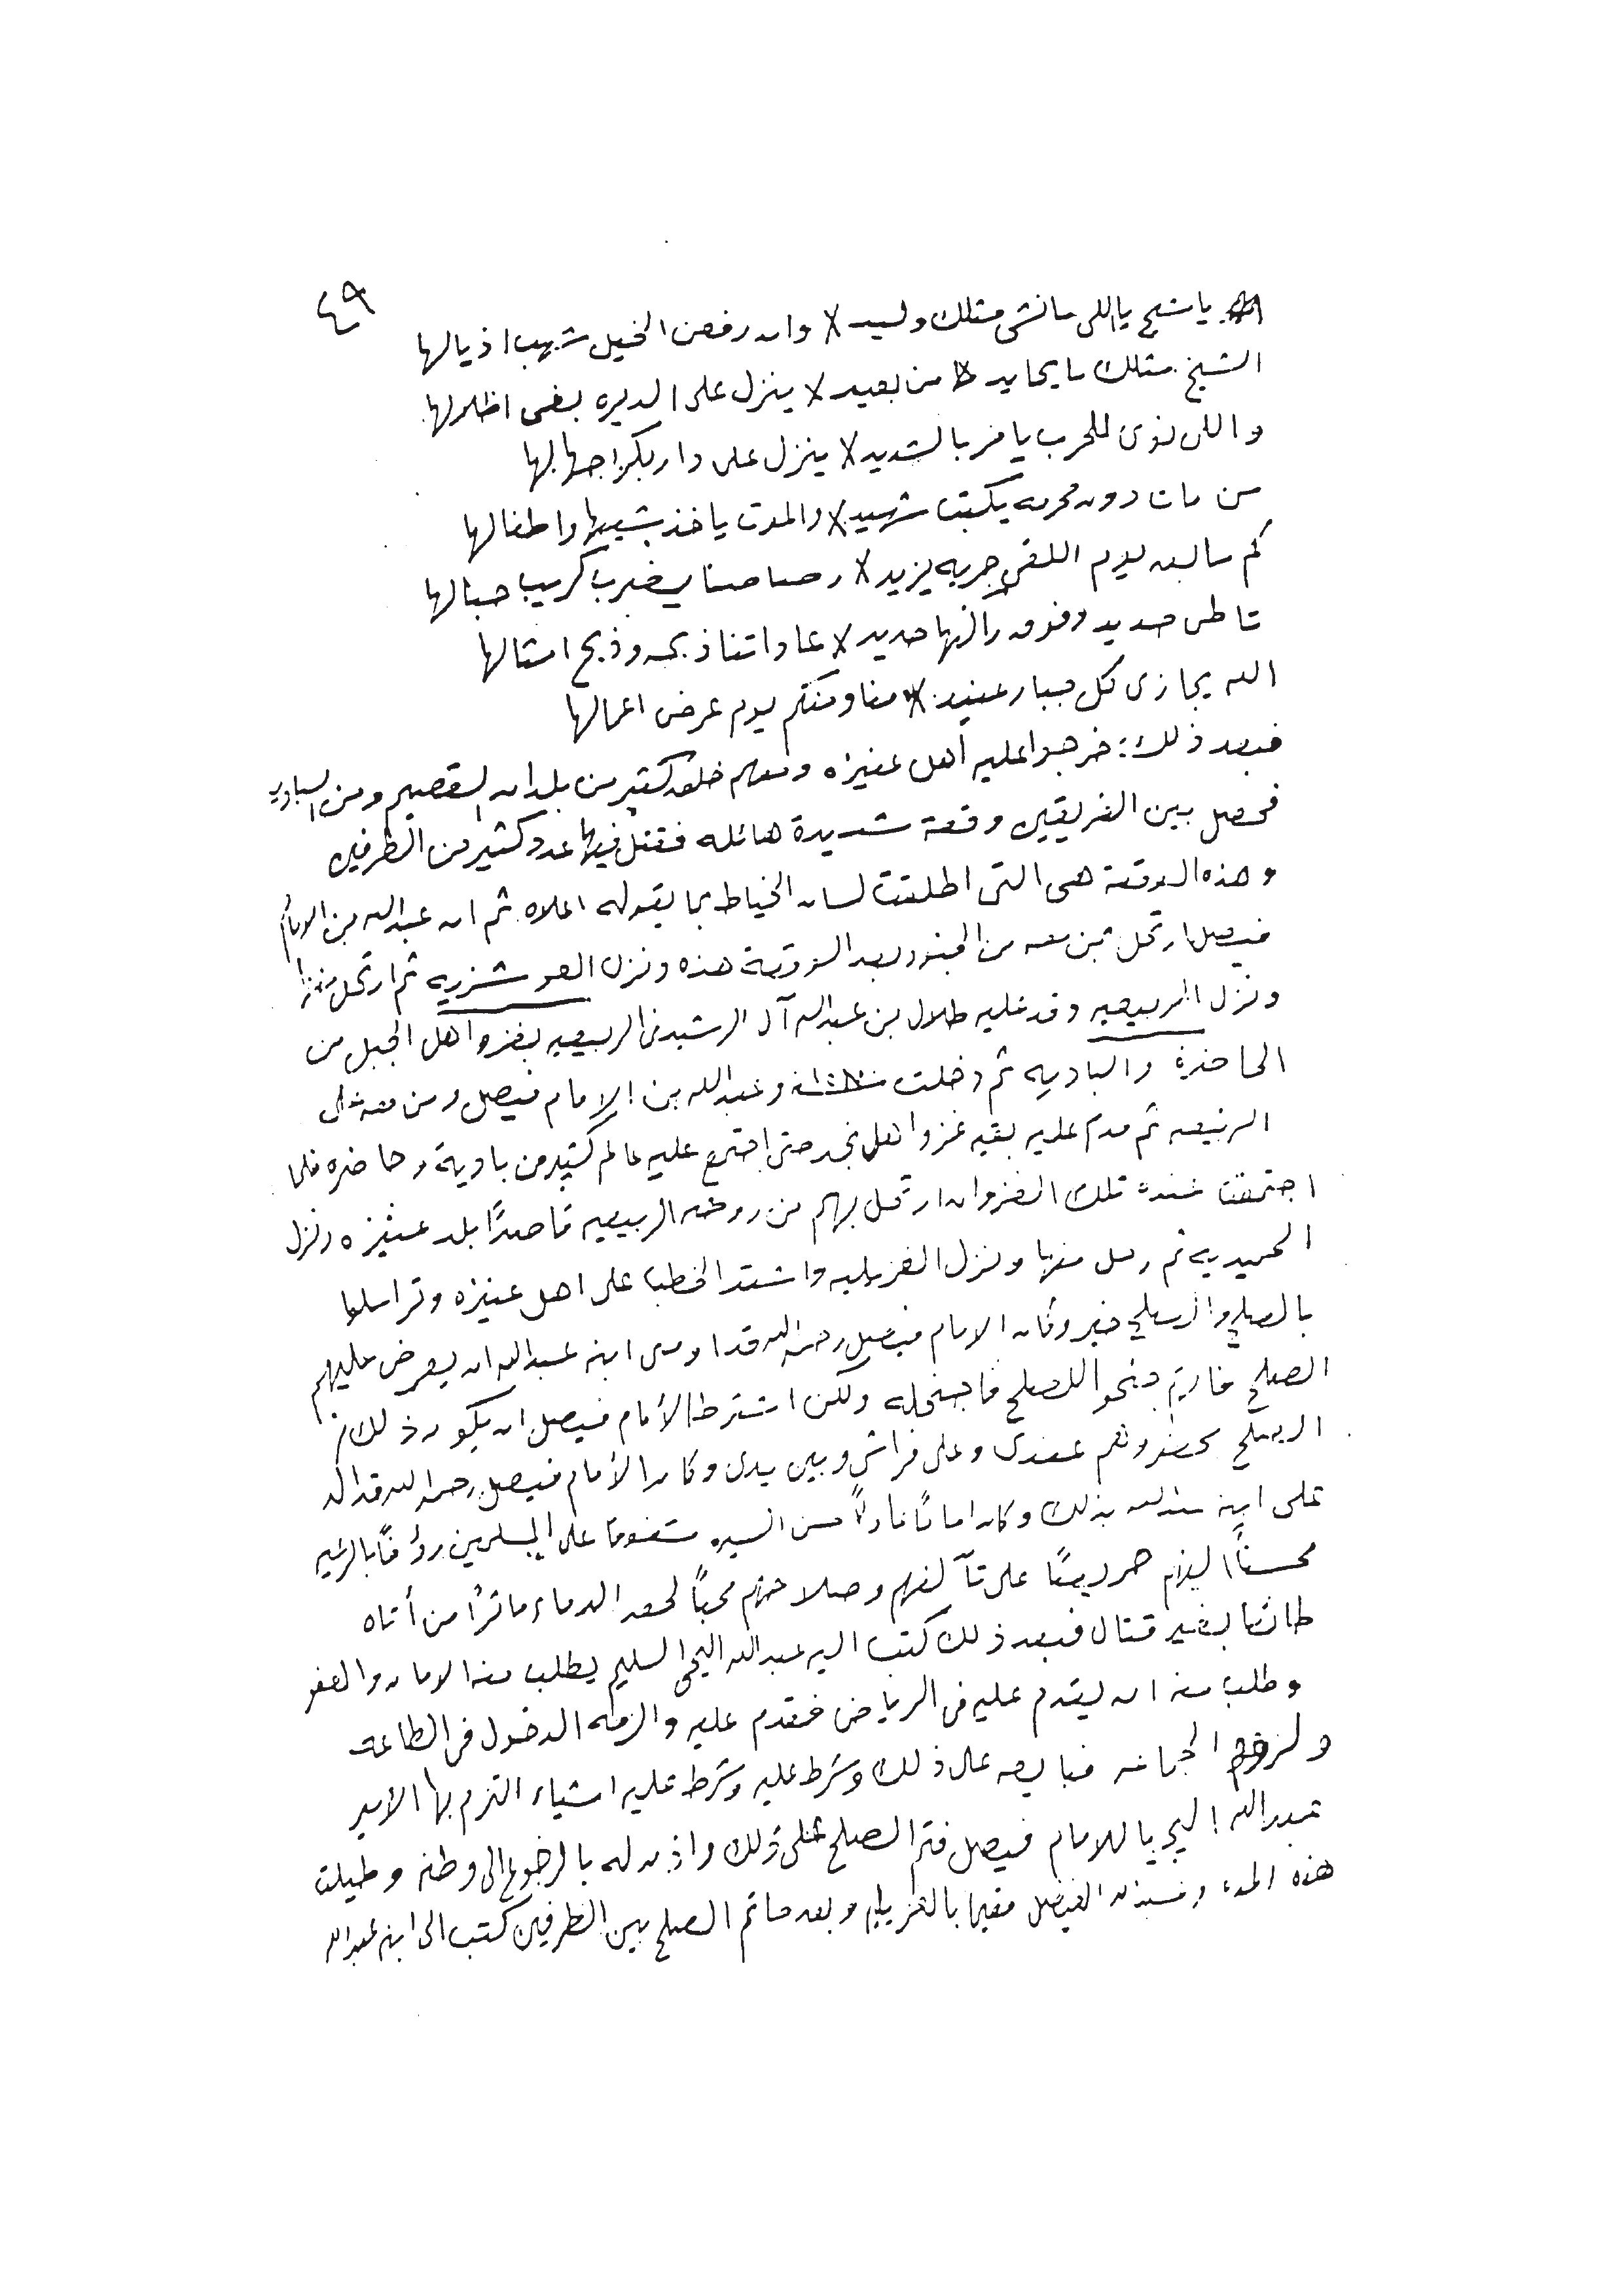 ٤٩
يا شيخ ياللى ما نشى مثلك وليد لا وان رفعن الخيل شهب اذيالها
الشيخ مثلك ما يحايد من بعيد لا ينزل على الديره بغى اظلالها
واللى نوى للحرب يا ضرب الشديد لا ينزل على دار يكرا جهالها
من مات دون محرمه يكتب شهيد لا والموت ياخذ شيبها واطفالها
كم سابعه ليوم اللقى جريه يزيد لا رصاصنا يضرب كريب حبالها
تاطى حديد وفوق رانها حديد لا عاداتنا ذبحه وذبح امثالها
الله يجازى كل جبار عنيد لا منا ومنكم يوم عرض اعمالها
فبعد ذلك: خرجوا عليه أهل عنيزه ومعهم خلق كثير من بلدان القصيم ومن الباديه
فحصل بين الفريقين وقعة شديدة هائله فقتل فيها عدد كثير من الطرفين
وهذه الوقعة هى التى اطلقت لسان الخياط بما يقوله اعلاه ثم ان عبدالله بن الامام
فيصل ارتحل بمن معه من الجنود بعد الوقعة هذه ونزل العوشزيه ثم ارتحل منها
ونزل الربيعيه وقد عليه طلال بن عبدالله آل الرشيد فى الربيعيه بغزو اهل الجبل من
الحاضرة والباديه ثم دخلت وعبدالله بن الإمام فيصل ومن معه على
الربيعيه ثم قدم عليه بقيه غزو اهل نجد حتى اجتمع عليه عالم كثير من بادية وحاضره فلما
اجتمعت عنده تلك الغزوان ارتحل بهم من روضة الربيعيه قاصدًا بلد عنيزه ونزل
الحميديه ثم رحل منها ونزل الغزيليه واشتد الخطب على اهل عنيزه وتراسلوا
بالصلح والصلح خير وكان الامام فيصل رحمه الله قد اوصى ابنه عبدالله ان يعرض عليهم
الصلح فان جنحوا للصلح فاجنح له ولكن اشترط الأمام فيصل ان يكون ذلك
الصلح بحضورهم عندى وعلى فراشى وبين يدى وكان الأمام فيصل رحمه الله قد اكد
على ابنه عبدالله بذلك وكان امامًا عادلًا حسن السيره شفوقا على المسلمين رؤفًا بالرعيه
محسنًا اليهم حريصًا على تآلفهم وصلاحهم محبًا لحقن الدماء ما ترا من أتاه
طائعا بغير قتال فبعد ذلك كتب اليه عبدالله اليحى السليم يطلب منه الامان والعفو
وطلب منه ان يقدم عليه فى الرياض فقدم عليه والزمه الدخول فى الطاعه
ولزوم الجماعه فبايعه على ذلك وشرط عليه وشرط عليه اشياء التزم بها الامير
عبدالله اليحيا للامام فيصل فتم الصلح على ذلك واذن له بالرجوع الى وطنه وطيلت
هذه المده وعبدالله الفيصل مقيما بالغزيليه وبعد ما تم الصلح بين الطرفين كتب الى ابنه عبدالله